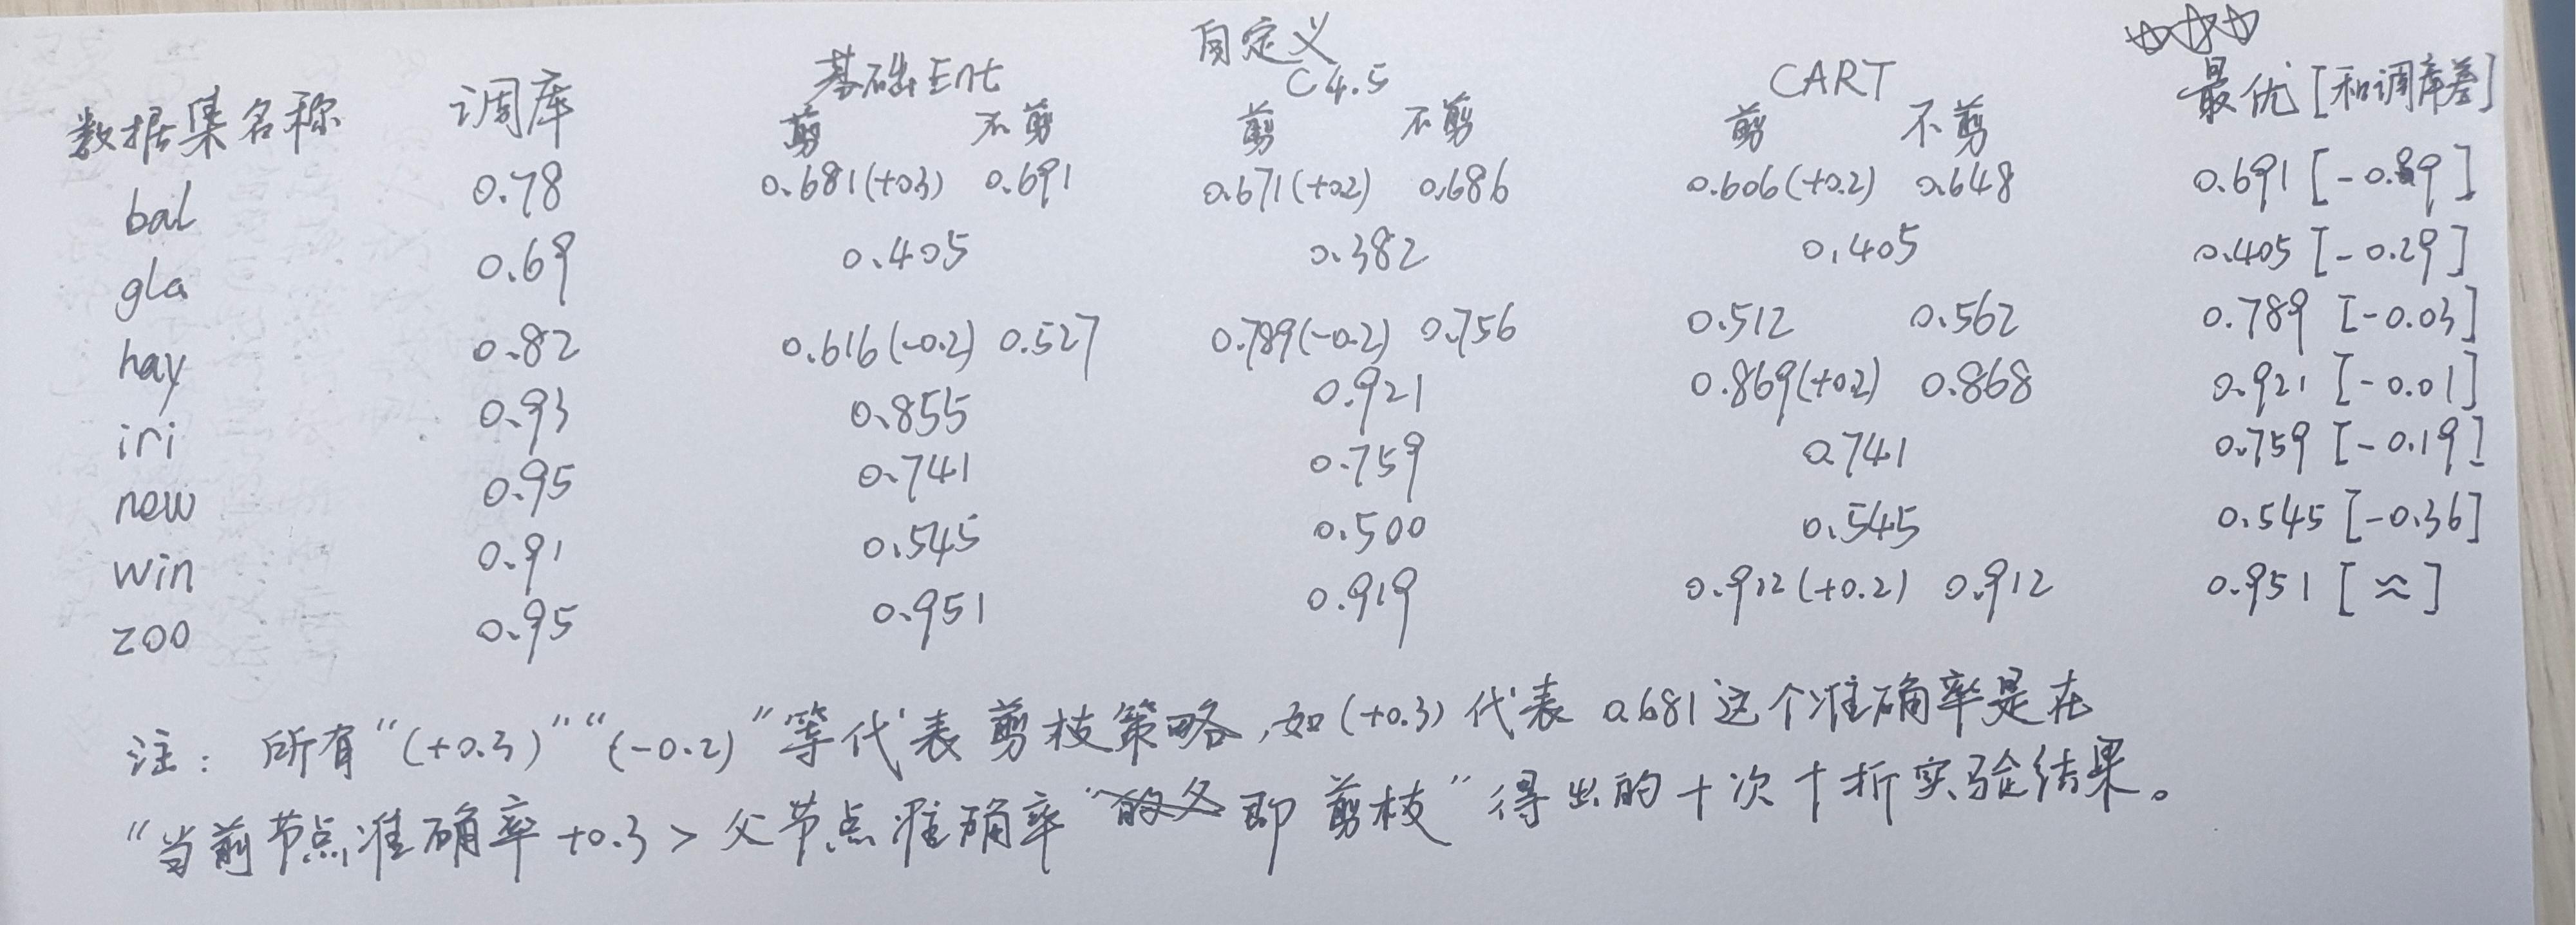 自定义
数据集名称 调库 基础Ent C4.5 CART 最优[和调库差]
剪 不剪 剪 不剪 剪 不剪
bal 0.78 0.681(+0.3) 0.691 0.671(+0.2) 0.686 0.606(+0.2) 0.648 0.691 [-0.89]
gla 0.69 0.405 0.382 0.405 0.405 [-0.29]
hay 0.82 0.616(-0.2) 0.527 0.789(-0.2) 0.756 0.512 0.562 0.789 [-0.03]
iri 0.93 0.855 0.921 0.869(+0.2) 0.868 0.921 [-0.01]
new 0.95 0.741 0.759 0.741 0.759 [-0.19]
win 0.91 0.545 0.500 0.545 0.545 [-0.36]
zoo 0.95 0.951 0.919 0.912(+0.2) 0.912 0.951 [≈]
注：所有“(+0.3)”“(-0.2)”等代表剪枝策略,如(+0.3)代表0.681这个准确率是在
“当前节点准确率+0.3>父节点准确率 即剪枝”得出的十次十折实验结果。